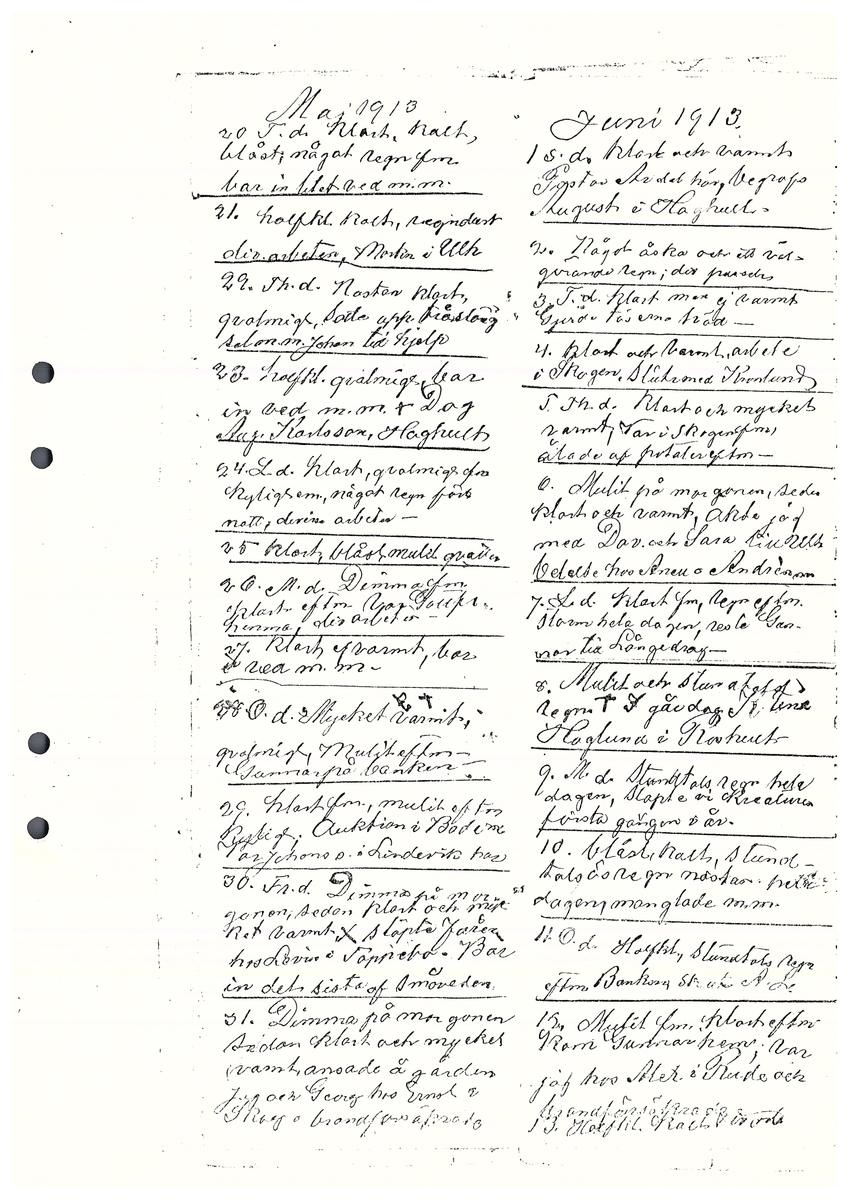 Maj 1913
20 T.d. Klart, Kallt,
blåst, något regn fm.
bar in litet ved m.m.
21. halfkl. kalt, regndust
div. arbeten, Martin i Ulk
22. Th.d. Nästan klart,
qvalmigt, satte upp
m. Johan till hjelp
23. halfkl. qvalmigt, bar
in ved m.m. † Dog
Aug. Karlsson, Haghult
24. L.d. Klart, qvalmigt fm
kyligt em, något regn förs
natt, diverse arbeten —
25 klart, blåst, mulit qvällen
26. M.d. Dimma fm
klart eftm var
hemma, div arbeten —
27. klart o varmt, bar
ved m.m. —
28 O.d. Mycket varmt,
qvalmigt, Mulit eftm —
Gunnar på banken —
29. klart fm, mulit eftm
kyligt. Auktion i
i Lindevik
30. Fr.d. Dimma på mor-
gonen, sedan klart och myc-
ket varmt, X släpte fåren
hos i Bar
in det sista af småveden.
31. Dimma på morgonen
sedan klart och mycket
varmt ansade å gården
jag och Georg hos Ernst i
Skog o brandförsäkrade
Juni 1913.
1 S.d. Klart och varmt
Gustav här, begrofs
August i Haghult
2. Något åska och ett väl-
görande regn; div
3. T.d. klart men ej varmt
Gjorde —
4. klart och varmt, arbete
i Skogen, Slut med Kronlund
5. Th.d. Klart och mycket
varmt, Var i Skogen fm,
ålade af potater eftm —
6. Mulit på morgonen, sedan
klart och varmt, åkte jag
med Dav. och Sara till Ulk
hos o Andrén m
7. L.d. klart fm, regn eftm.
Storm hela dagen, reste Gun-
nar till Långedrag —
8. Mulit och
regn † I går dog
Haglund i Roshult
9. M.d. Stundtals regn hela
dagen, släpte vi kreaturen
första gången i år.
10. blåst, kalt, stund-
tals ösregn nästan hela
dagen, manglade m.m.
11 O.d. Halfkl, stundtals regn
eftm Banken
12. Mulit fm. Klart eftm
Kom Gunnar hem; var
jag hos Alex i Rude och
brandförsäkrade
13. Halfkl. Kalt